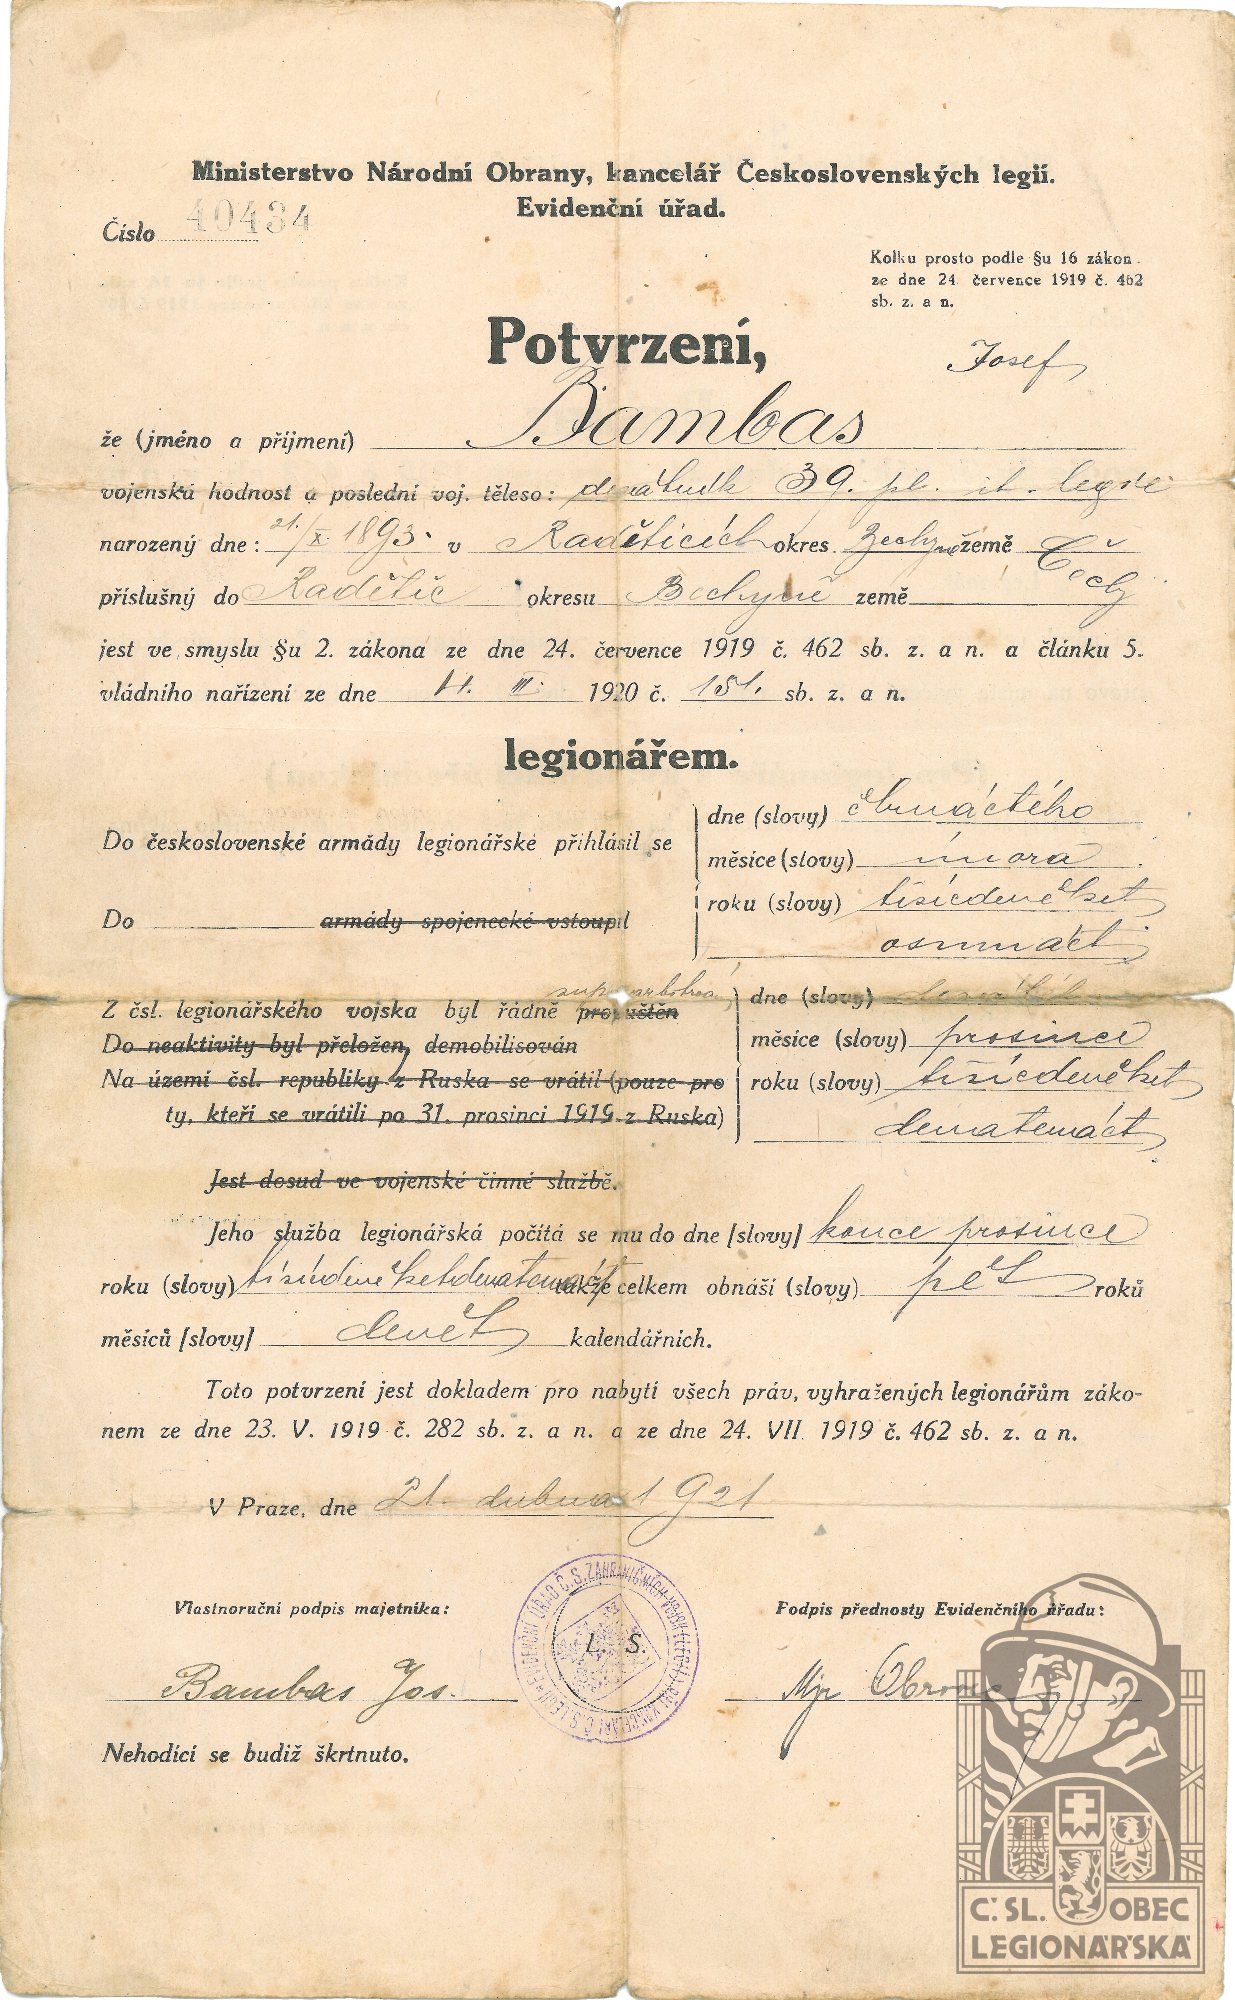 Ministerstvo Národní Obrany, kancelář Československých legií.
Evidenční úřad.
Číslo 40434
Kolku prosto podle §u 16 zákon.
ze dne 24. července 1919 č. 462
sb. z. a n.
Potvrzení,
Josef
že (jméno a příjmení) Bambas
vojenská hodnost a poslední voj. těleso: desátník 39. pl. it. legie
narozený dne: 21./X. 1893. v Raděticích okres Bechyně země Čechy
příslušný do Radětic okresu Bechyně země
jest ve smyslu §u 2. zákona ze dne 24. července 1919 č. 462 sb. z. a n. a článku 5.
vládního nařízení ze dne 11. III. 1920 č. 151. sb. z. a n.
legionářem.
Do československé armády legionářské přihlásil se
dne (slovy) čtrnáctého
měsíce (slovy) února
roku (slovy) tisícdevětset
osmnáct
Do armády spojenecké vstoupil
Z čsl. legionářského vojska byl řádně propuštěn
Do neaktivity byl přeložen, demobilisován
Na území čsl. republiky z Ruska se vrátil (pouze pro
ty, kteří se vrátili po 31. prosinci 1919 z Ruska)
dne (slovy)
měsíce (slovy) prosince
roku (slovy) tisícdevětset
devatenáct
Jest dosud ve vojenské činné službě.
Jeho služba legionářská počítá se mu do dne [slovy] konce prosince
roku (slovy) tisícdevětsetdevatenáct takže celkem obnáší (slovy) pět roků
měsíců [slovy] devět kalendářních.
Toto potvrzení jest dokladem pro nabytí všech práv, vyhražených legionářům záko-
nem ze dne 23. V. 1919 č. 282 sb. z. a n. a ze dne 24. VII. 1919 č. 462 sb. z. a n.
V Praze, dne 21. dubna 1921
Vlastnoruční podpis majetníka:
Podpis přednosty Evidenčního úřadu:
L. S.
Bambas Jos.
Mjr
Nehodící se budiž škrtnuto.
Č. SL. OBEC
LEGIONÁŘSKÁ